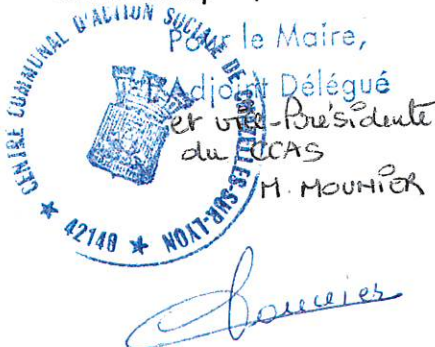 Pour le Maire,
L'Adjoint Délégué
et vice-Présidente
du CCAS
M. MOUNIER
CENTRE COMMUNAL D'ACTION SOCIALE DE CHAZELLES-SUR-LYON
★ 42140 ★
Mounier